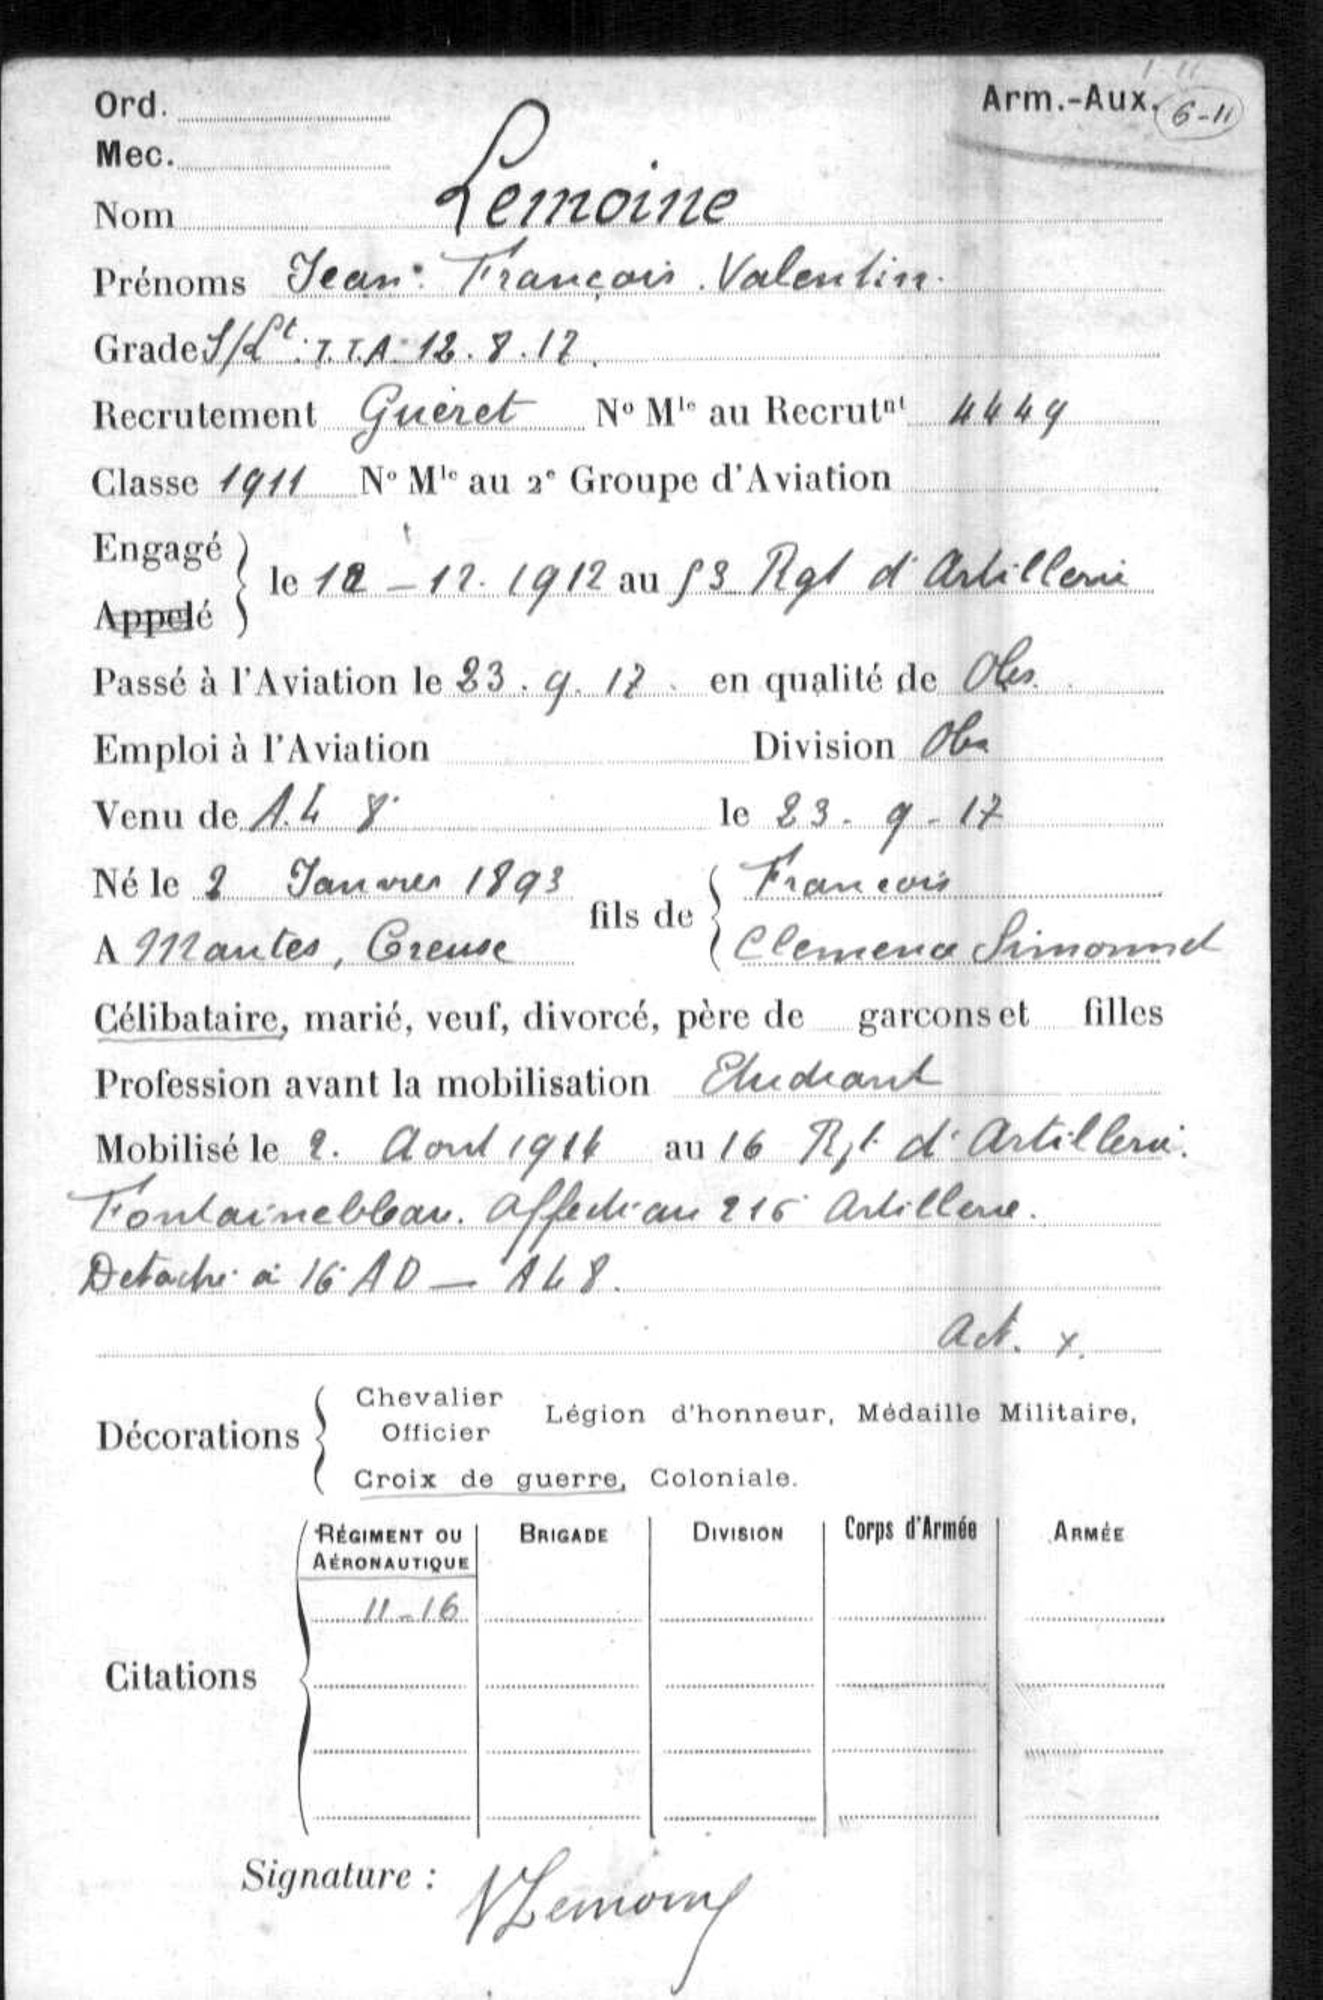 Ord.
Arm.-Aux. 6-11
Mec.
Nom Lemoine
Prénoms Jean François Valentin.
Grade S/Lt T.T.A. 12.8.17.
Recrutement Guéret No Mle au Recrutnt 4449
Classe 1911 No Mle au 2e Groupe d'Aviation
Engagé
le 12-12.1912 au 53 Rgt d'Artillerie
Appelé
Passé à l'Aviation le 23.9.17 en qualité de Obs.
Emploi à l'Aviation Division Obs
Venu de A.L 8 le 23-9-17
Né le 2 Janvier 1893 fils de François
A Mantes, Creuse Clemence Simonnet
Célibataire, marié, veuf, divorcé, père de garcons et filles
Profession avant la mobilisation Etudiant
Mobilisé le 2. Aout 1914 au 16 Rgt d'Artillerie.
Fontainebleau. Affecté au 215 Artillerie.
Detaché à 16 AD — AL 8.
Act. X.
Décorations Chevalier Officier Légion d'honneur, Médaille Militaire,
Croix de guerre, Coloniale.
RÉGIMENT OU AÉRONAUTIQUE BRIGADE DIVISION Corps d'Armée ARMÉE
11-16
Citations
Signature : VLemoine